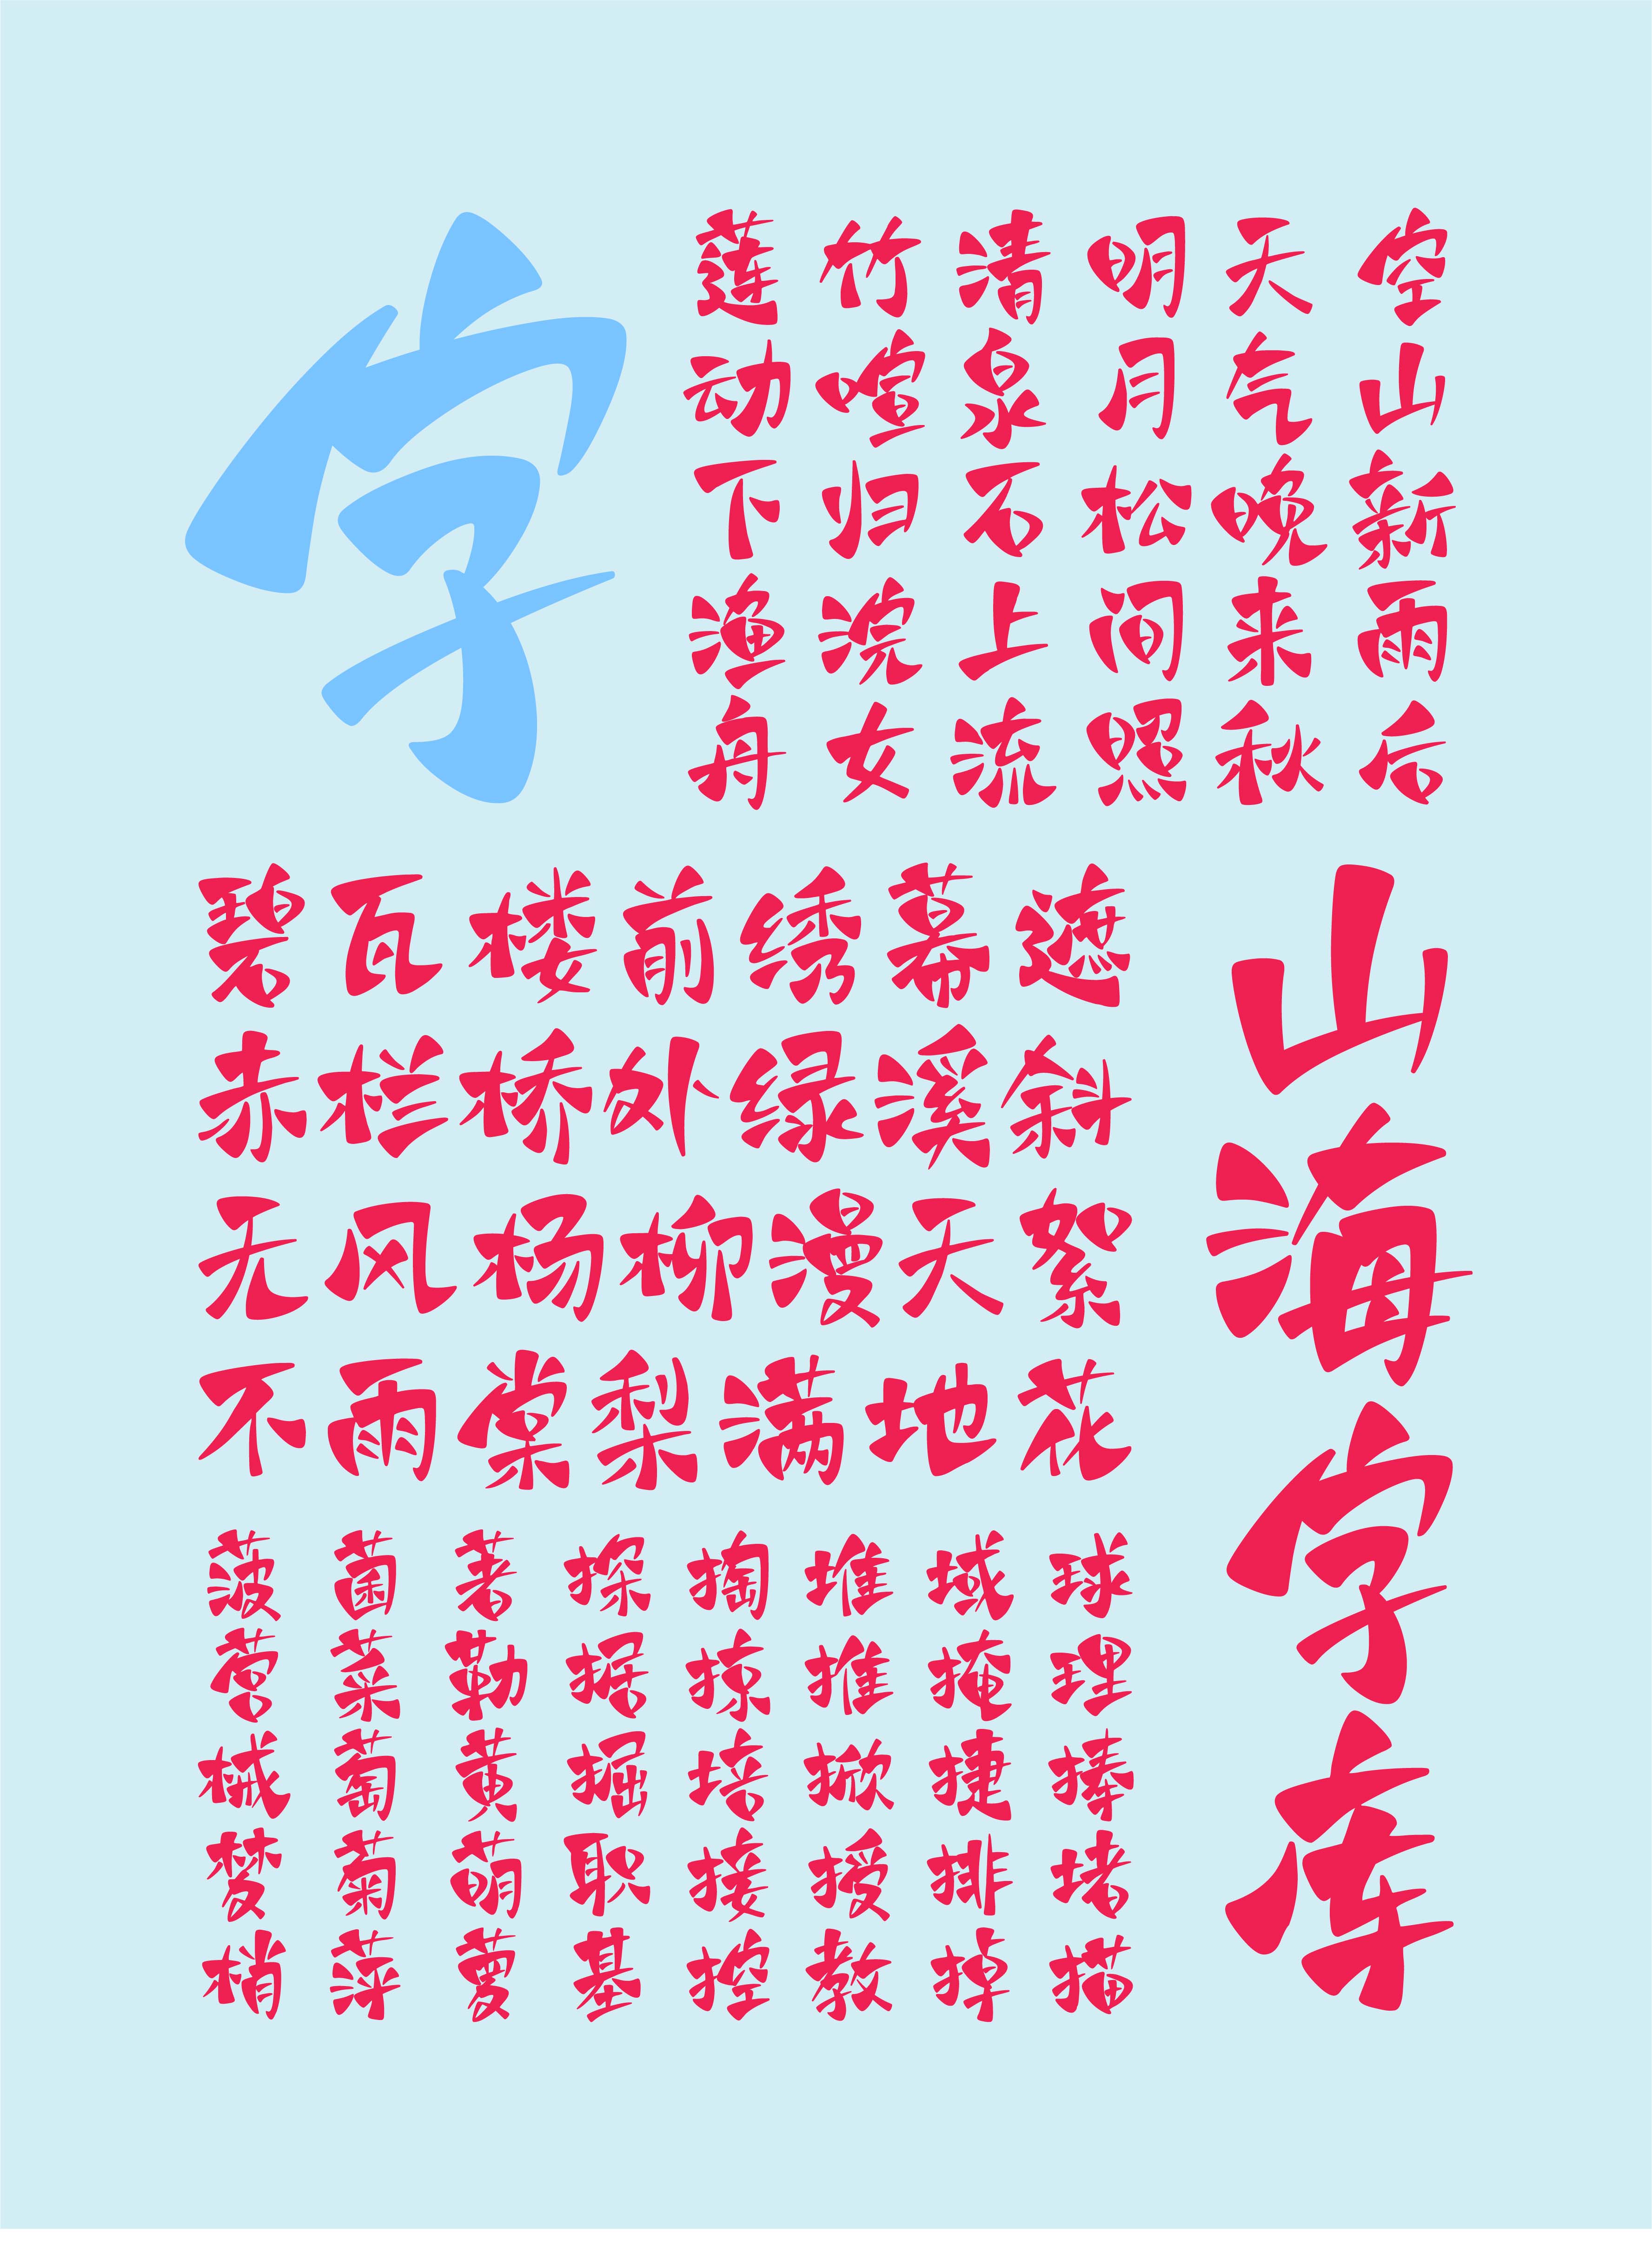 字
空山新雨后
天气晚来秋
明月松间照
清泉石上流
竹喧归浣女
莲动下渔舟
山海字库
碧瓦楼前绣幕遮
赤栏桥外绿溪斜
无风杨柳漫天絮
不雨棠梨满地花
球理捧堵描
域掩捷排掉
堆推掀授教
掏掠培接控
探据掘职基
著勒黄萌萝
菌菜萄菊萍
菠营械梦梢